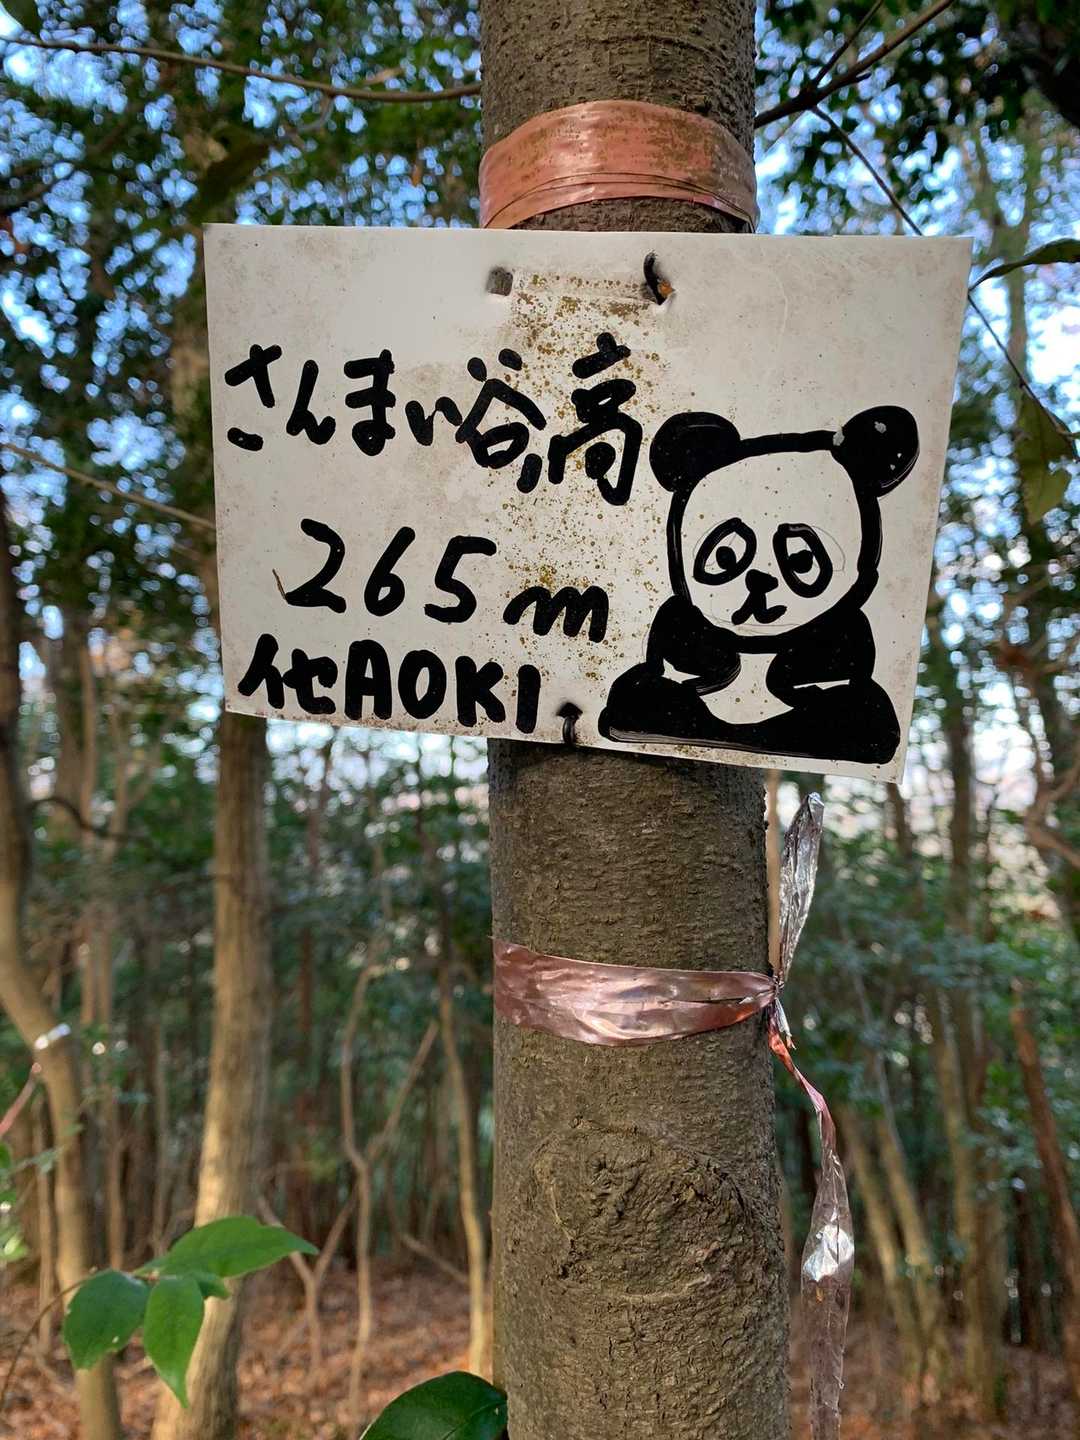 さんまい谷,高
265m
他AOKI